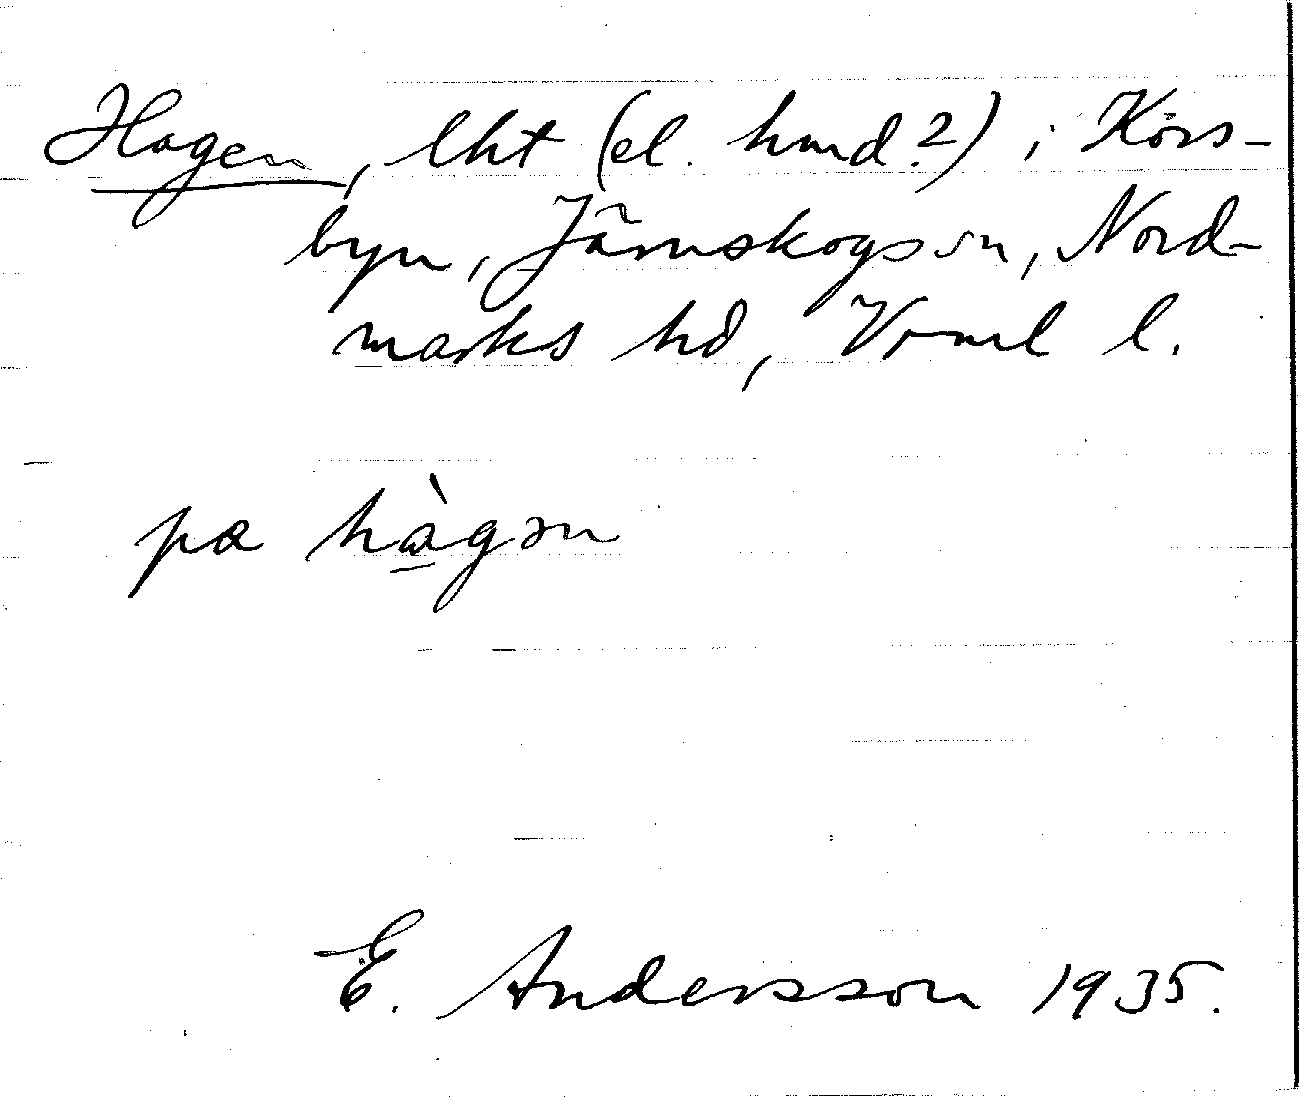 Hagen, lht (el. hmd?) i Körs-
byn, Järnskogs sn, Nord-
marks hd, Vrml l.
pa hàgən
E. Andersson 1935.